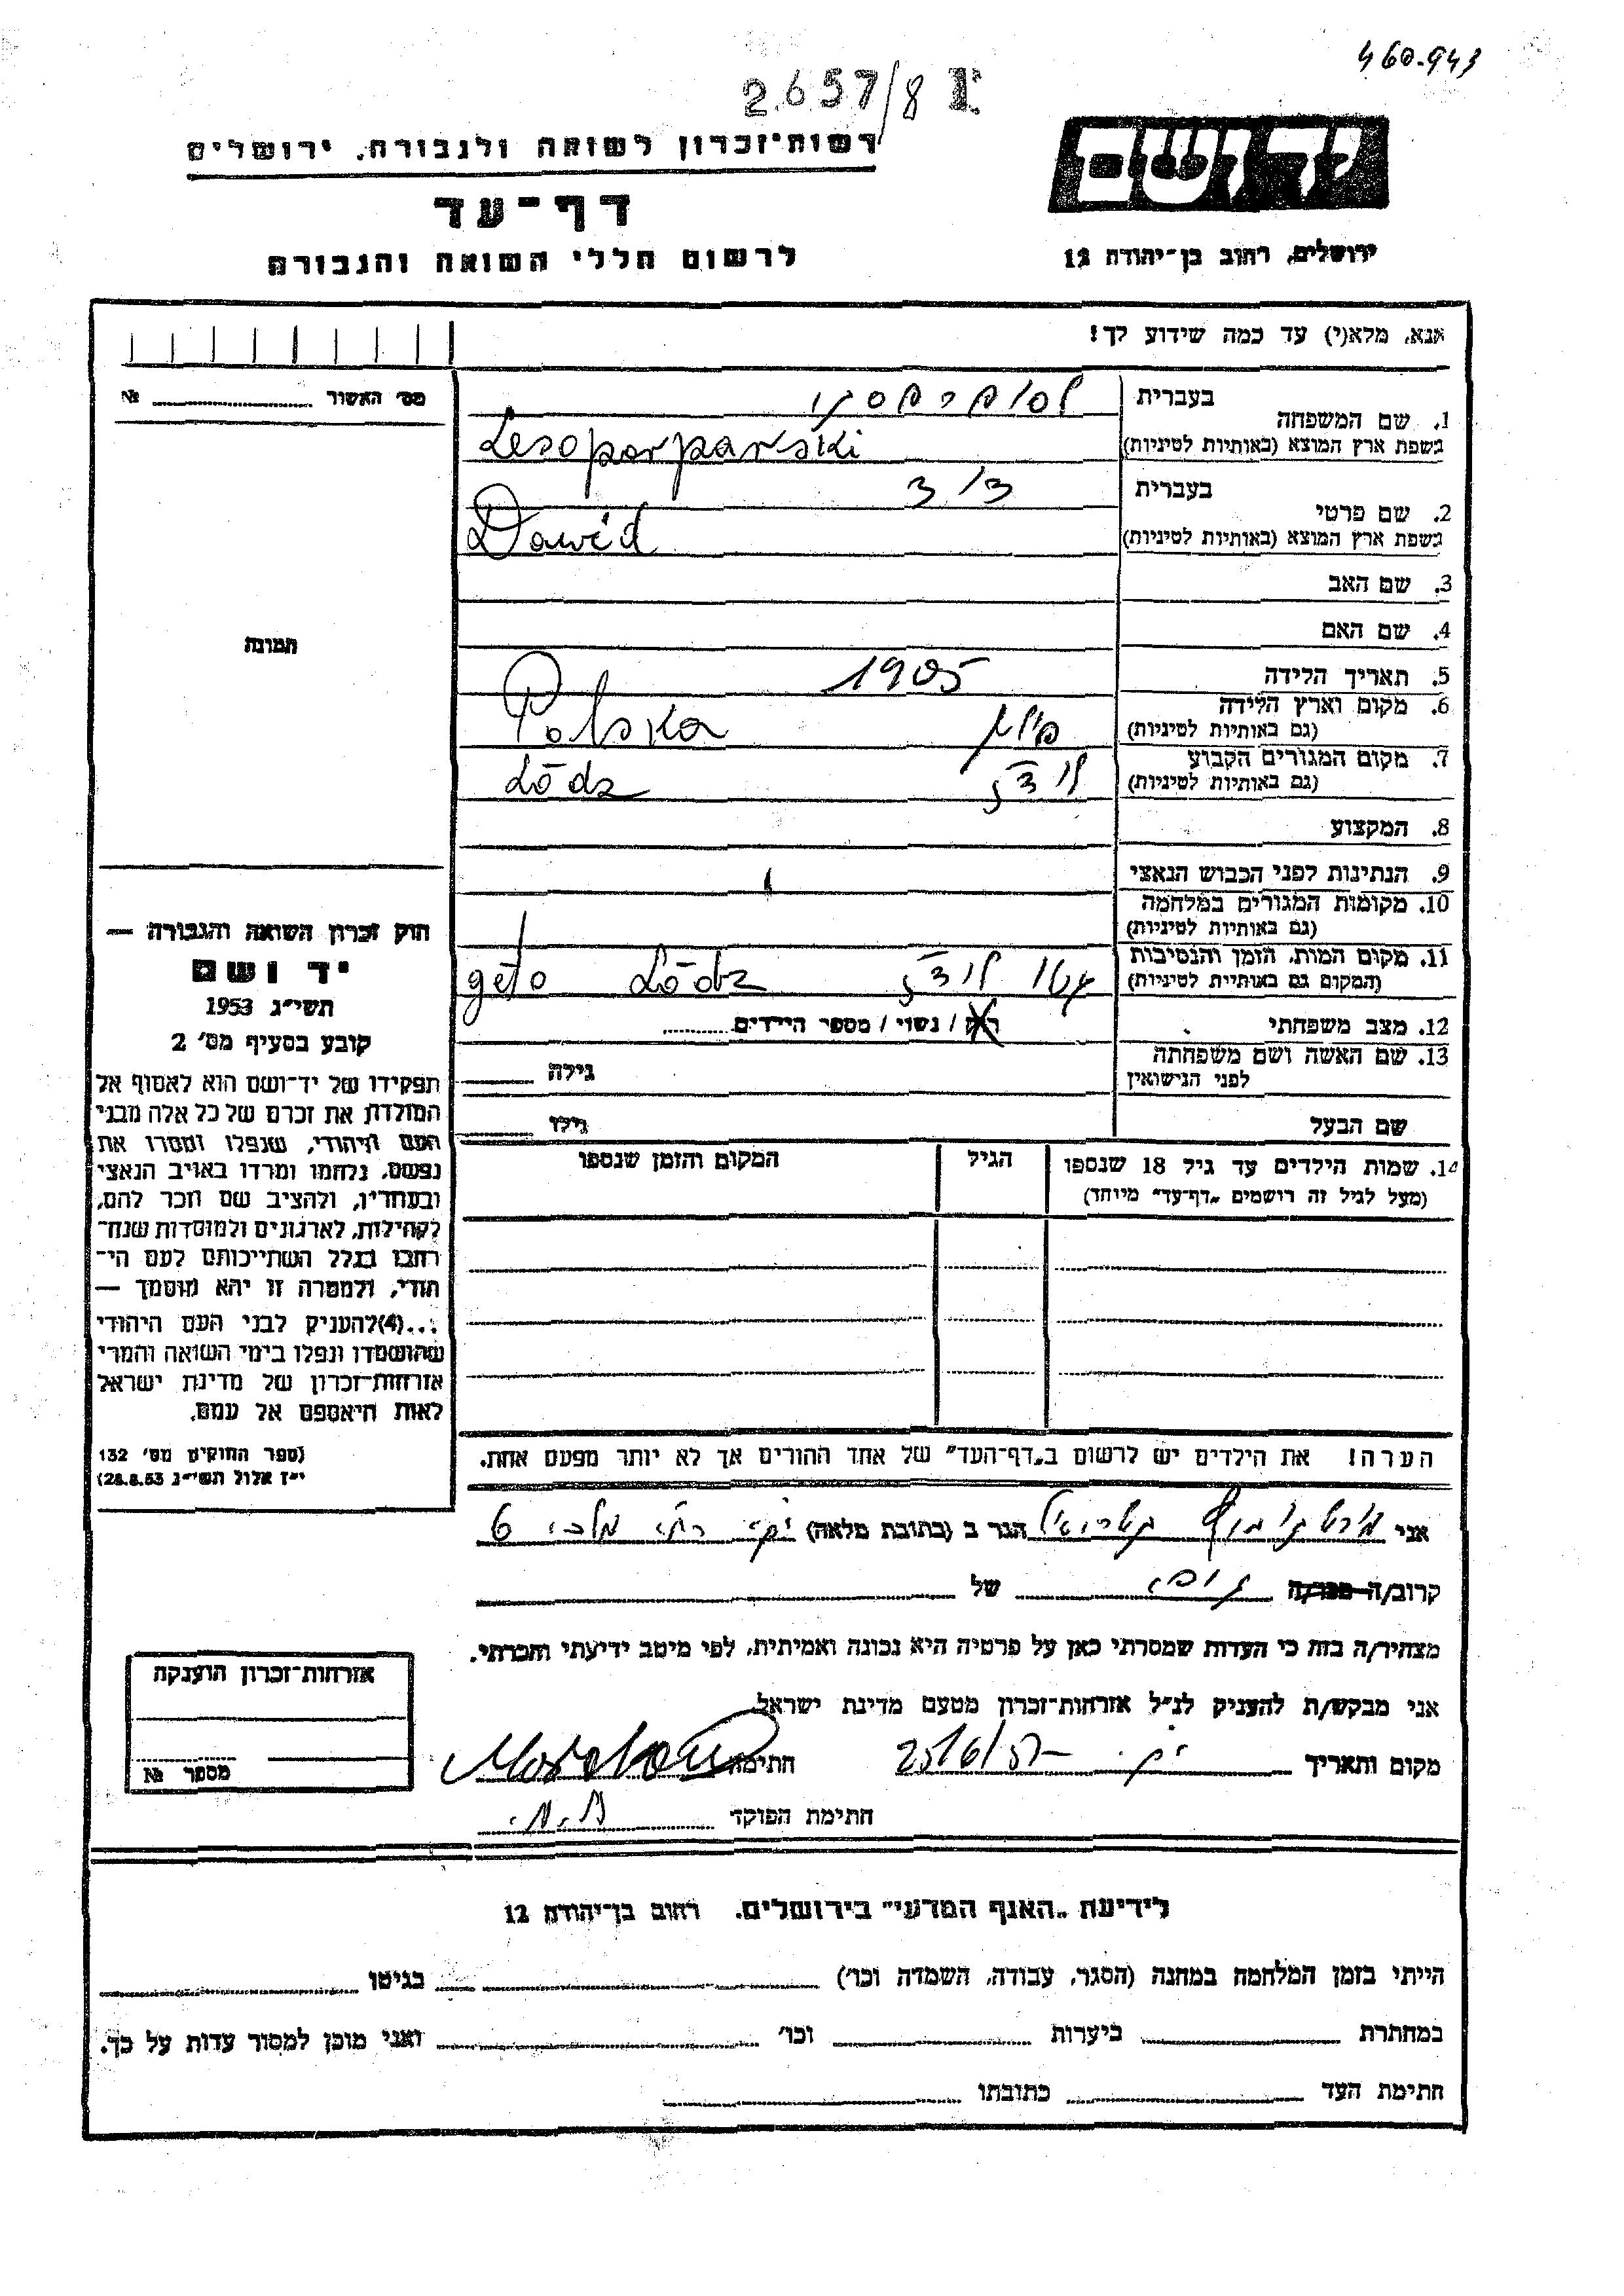 460.943
2657/8 I
רשות-זכרון לשואה ולגבורה, ירושלים
דף-עד
לרשום חללי השואה והגבורה
יד ושם
ירושלים, רחוב בן-יהודה 12
אנא, מלא(י) עד כמה שידוע לך!
מס' האשור № 
תמונה
1. שם המשפחה בעברית
בשפת ארץ המוצא (באותיות לטיניות) Lesoporparski
2. שם פרטי בעברית דוד
בשפת ארץ המוצא (באותיות לטיניות) Dawid
3. שם האב
4. שם האם
5. תאריך הלידה 1905
6. מקום וארץ הלידה
(גם באותיות לטיניות) פולין Polska
7. מקום המגורים הקבוע
(גם באותיות לטיניות) לודז' Lódz
8. המקצוע
9. הנתינות לפני הכבוש הנאצי
10. מקומות המגורים במלחמה
(גם באותיות לטיניות)
11. מקום המות, הזמן והנסיבות
(המקום גם באותיות לטיניות) גטו לודז' geto Lódz
12. מצב משפחתי רוק / נשוי / מספר הילדים
13. שם האשה ושם משפחתה
לפני הנישואין גילה
שם הבעל גילו
14. שמות הילדים עד גיל 18 שנספו הגיל המקום והזמן שנספו
(מעל לגיל זה רושמים "דף-עד" מיוחד)
הערה! את הילדים יש לרשום ב"דף-העד" של אחד ההורים אך לא יותר מפעם אחת.
חוק זכרון השואה והגבורה —
יד ושם
תשי"ג 1953
קובע בסעיף מס' 2
תפקידו של יד-ושם הוא לאסוף אל
המולדת את זכרם של כל אלה מבני
העם היהודי, שנפלו ומסרו את
נפשם, נלחמו ומרדו באויב הנאצי
ובעוזריו, ולהציב שם וזכר להם,
לקהילות, לארגונים ולמוסדות שנח-
רבו בגלל השתייכותם לעם הי-
הודי, ולמטרה זו יהא מוסמך —
...(4) להעניק לבני העם היהודי
שהושמדו ונפלו בימי השואה והמרי
אזרחות-זכרון של מדינת ישראל
לאות היאספם אל עמם.
(ספר החוקים מס' 132
י"ז אלול תשי"ג 28.8.53)
אני הגר ב (כתובת מלאה) 6
קרוב/ה מכר/ה של
מצהיר/ה בזה כי העדות שמסרתי כאן על פרטיה היא נכונה ואמיתית, לפי מיטב ידיעתי והכרתי.
אני מבקש/ת להעניק לנ"ל אזרחות-זכרון מטעם מדינת ישראל
מקום ותאריך 25/6/57 חתימה
חתימת הפוקד
אזרחות-זכרון הוענקה
מספר №
לידיעת "האגף המדעי" בירושלים, רחוב בן-יהודה 12
הייתי בזמן המלחמה במחנה (הסגר, עבודה, השמדה וכו') בגיטו
במחתרת ביערות וכו' ואני מוכן למסור עדות על כך.
חתימת העד כתובתו